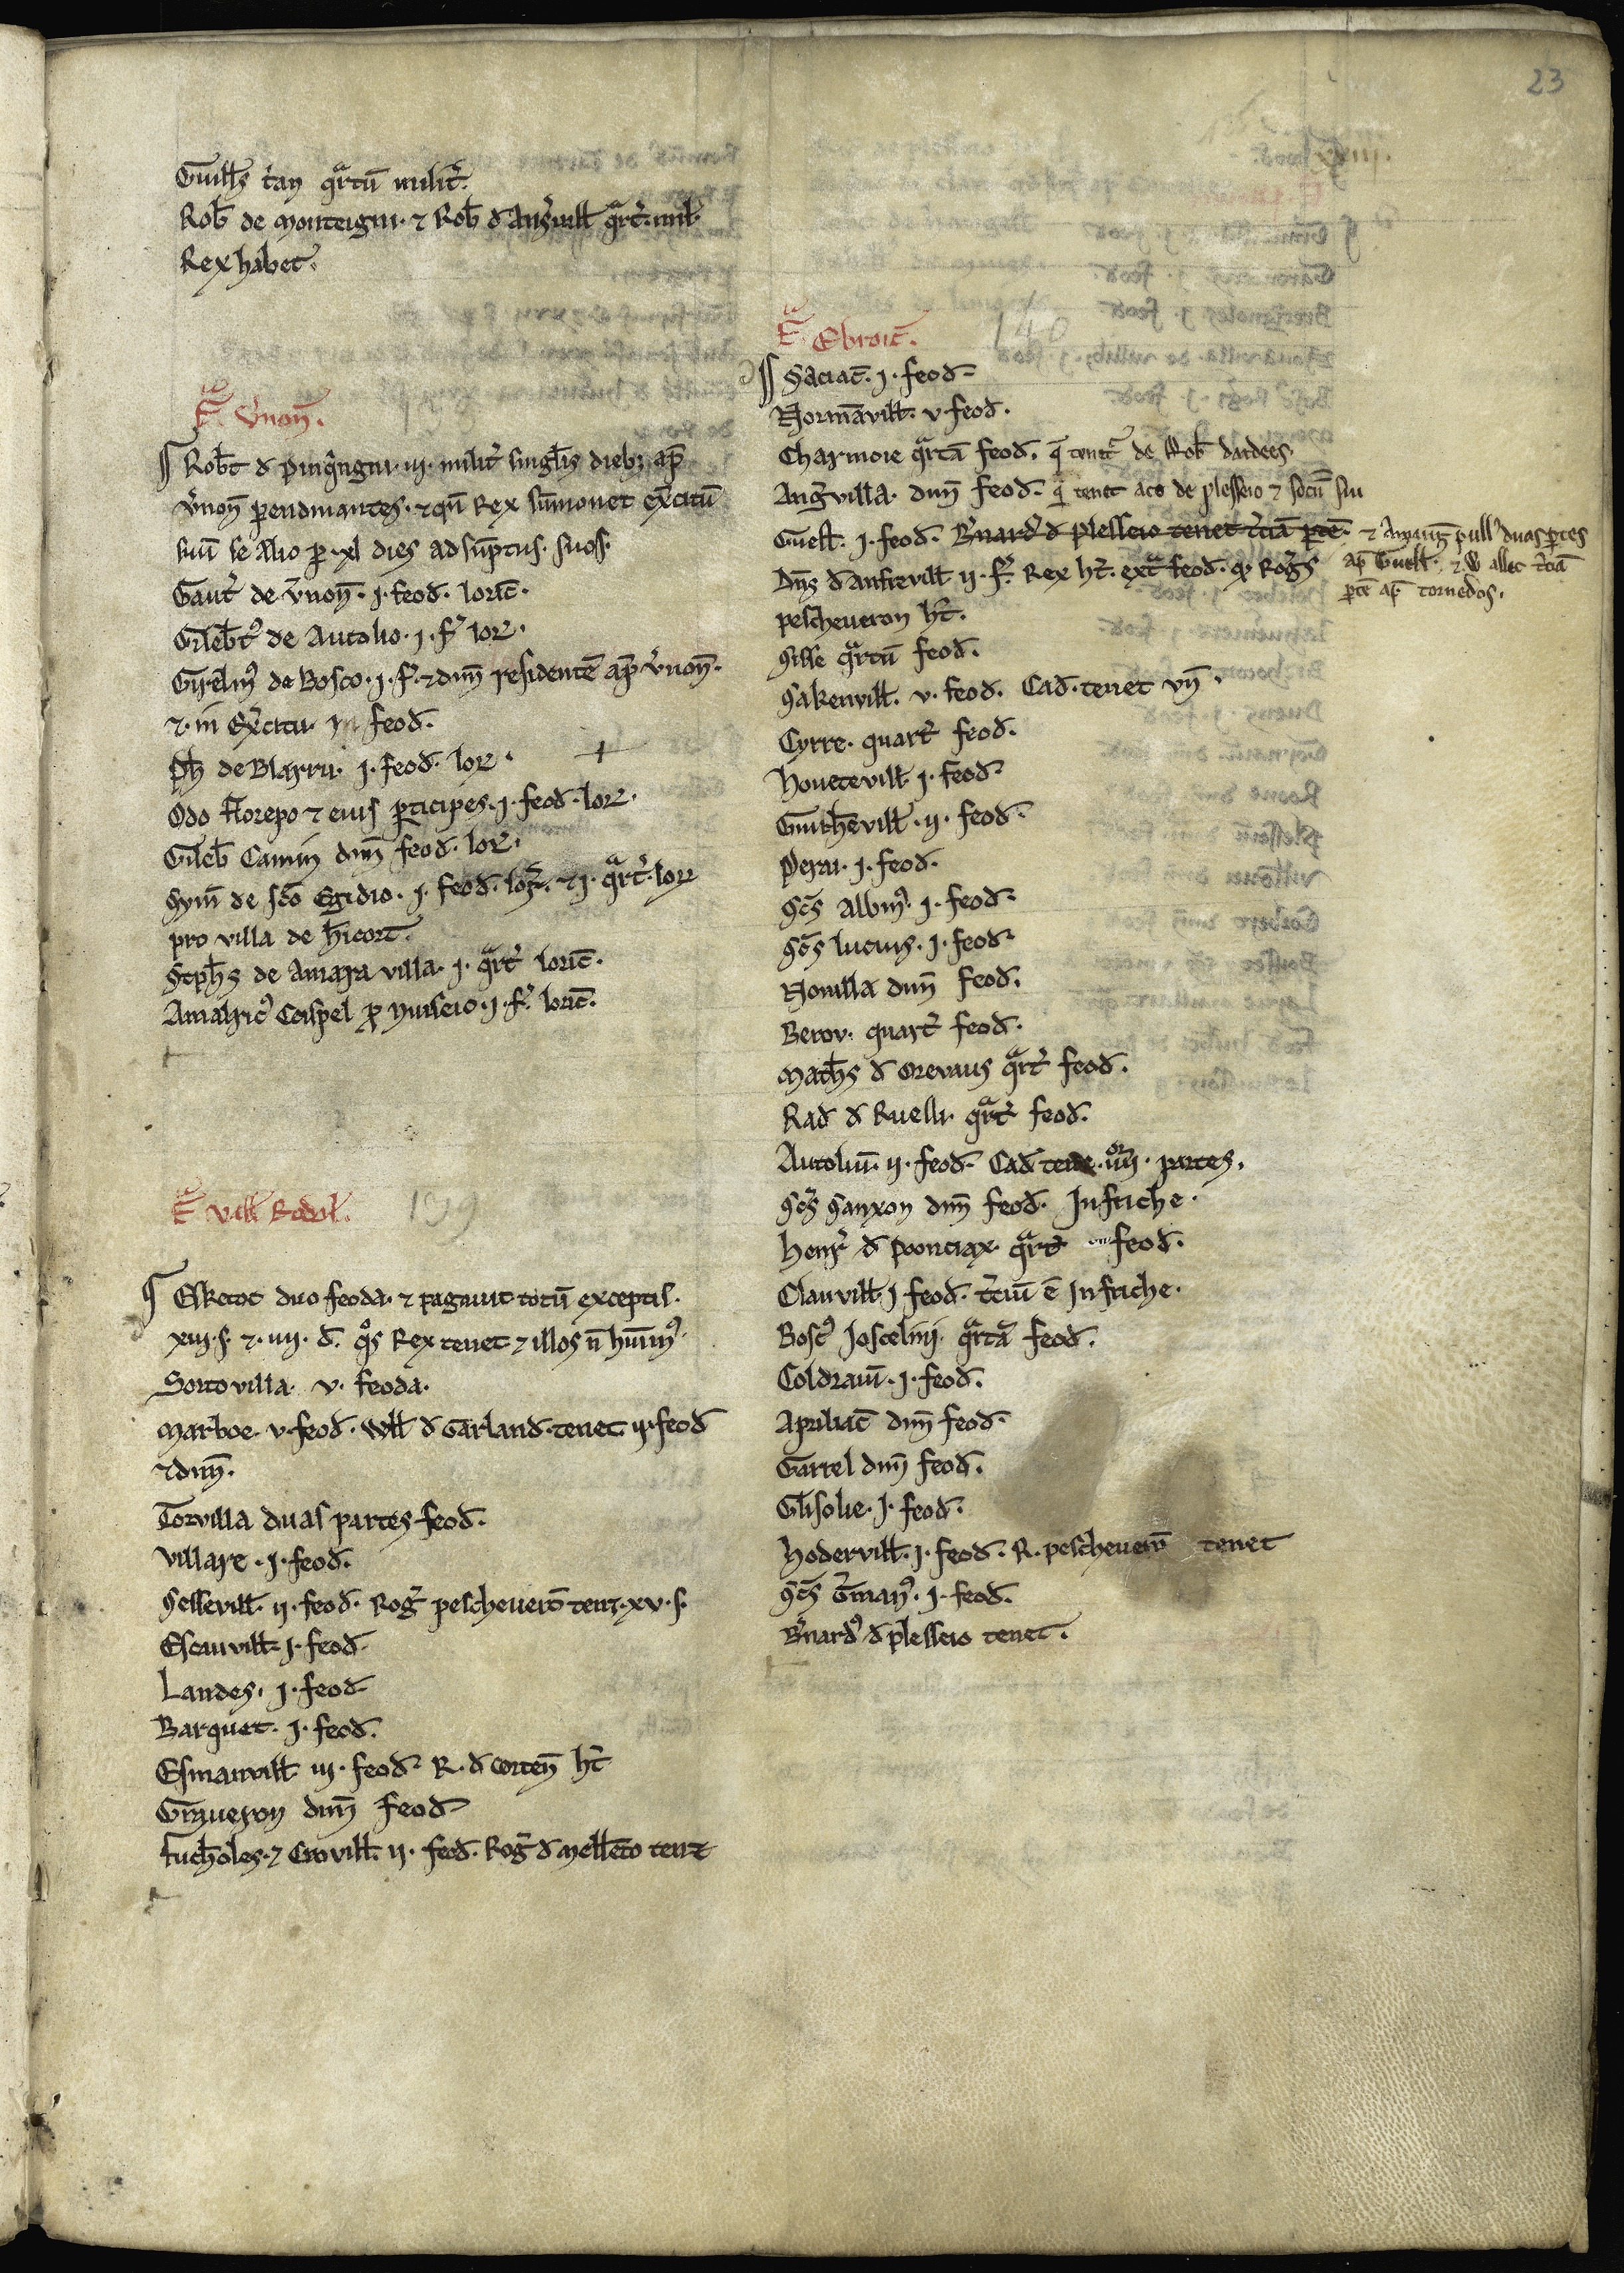 23
Guill̃s tan qᵃrtū milit̃.
Rob̃ de monteigni· ⁊ Rob̃ đ Ansg̃uill̃ qᵃrt̃· mil̃·
Rex habet·
F̃ᵃ Ṽnon̄.
Rob̃t đ pinq̃ngni· iii· milit̃ singl̃is dieb; ap̃
ṽnon̄ perendinantes· ⁊ qn̄ Rex sūmonet ex̃citū
suū se alio ꝑ xl dies ad sūptus suos·
Gaut̃ de ṽnon̄· j· feod̃· loric̃·
Gileb̃tꝰ de Autolio· j· f̃· lor̃·
Girelmꝰ de Bosco· j· f̃· ⁊ dim̄ residentē ap̃ ṽnon̄·
⁊ in ex̃citu feod̃·
Ph̃ de Blarru· j· feod̃· lor̃·
Odo florepo ⁊ eius ꝑticipes· j· feod̃· lor̃·
Gileb̃ Camin dim̄ feod̃· lor̃·
Sym̄ de sc̃o Egidio· j· feod̃· lor̃· ⁊ j· qᵃrt̃· lor̃
pro villa de h̃icort·
Steph̃s de Amara villa· j· qᵃrt̃ loric̃·
Amalricꝰ Coispel ꝓ ynisseio· j· f̃· loric̃·
F̃ᵃ vill̃ Rodol̃.
139
Esketot duo feoda· ⁊ pagnuit totū except̃ s·
xiii· s̃· ⁊ iiii· d̃· qᵒs Rex tenet ⁊ illos ñ hūimꝰ·
Sortovilla· v· feoda·
Marboe· v· feod̃· Will̃ đ Garland̃· tenet ii· feod̃
⁊ dim̄·
Torvilla duas partes feod̃·
Villare· j· feod̃·
Sellevill̃· ii· feod̃· Rog̃ pescheverō tenz· xv· s̃·
Escauvill̃· j· feod̃·
Landes· j· feod̃
Barquet· j· feod̃·
Esmanvill̃ iii· feod̃· R· đ corten̄ h̃t
Graveron dim̄ feod̃
Fucholes· ⁊ Crovill̃· ii· feod̃· Rog̃ đ mell̃eto tenz
F̃ᵃ Ebroic̃.
140
Saciac̃· j· feod̃·
Normāvill̃· v· feod̃·
Charmoie qᵃrtā feod̃· q̃ tenet̃ de Rob̃ dardees·
Ang̃villa· dim̄ feod̃· q̃ tenet aco de plesseio ⁊ socii sui
Guell̃· j· feod̃· B̃nardꝰ đ plesseio tenet t̃ciā ꝑtē· ⁊ Amaurī pull̃ duas ꝑtes
ap̃ Guell̃· ⁊ W allec t̃ciā
ꝑtē ap̃ tornedos·
Dñs đ anfrevill̃ ii· f̃· Rex h̃t· extᵃ feod̃· qđ Rog̃s
pescheveron h̃t·
Sisse qᵃrtū feod̃·
Sakenvill̃· v· feod̃· Cad̃· tenet vn̄·
Cyrre· quart̃ feod̃·
Hovetevill̃· j· feod̃·
Guichēvill̃· ii· feod̃·
Peru· j· feod̃·
Sc̃s Albinꝰ· j· feod̃·
Sc̃s lucius· j· feod̃
Novilla dim̄ feod̃·
Berov· quart̃ feod̃·
Math̃s đ Orevaus qᵃrt̃ feod̃·
Rad̃ đ Ruelli· qᵃrt̃ feod̃·
Autoliū· ii· feod̃· Cad̃ tene· iiiᵒʳ· partes·
Sc̃s Sanxon dim̄ feod̃· In friche·
Henr̃ đ poonciax· qᵃrt̃ feod̃·
Clauvill̃ j feod̃· t̃ciū ē In friche·
Boscꝰ Joscelini· qᵃrtā feod̃·
Coldraiū· j· feod̃·
Apriliac̃ dim̄ feod̃·
Garrel dim̄ feod̃·
Gl̃isolie· j· feod̃·
Hodervill̃· j· feod̃· R· peschever̄ō tenet
Sc̃s G̃manꝰ· j· feod̃·
B̃nardꝰ đ plesseio tenet·